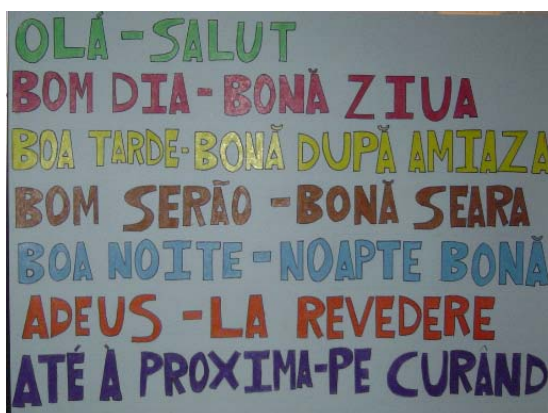 OLÁ - SALUT
BOM DIA - BONĂ ZIUA
BOA TARDE - BONĂ DUPĂ AMIAZA
BOM SERÃO - BONĂ SEARA
BOA NOITE - NOAPTE BONĂ
ADEUS - LA REVEDERE
ATÉ À PROXIMA - PE CURÂND